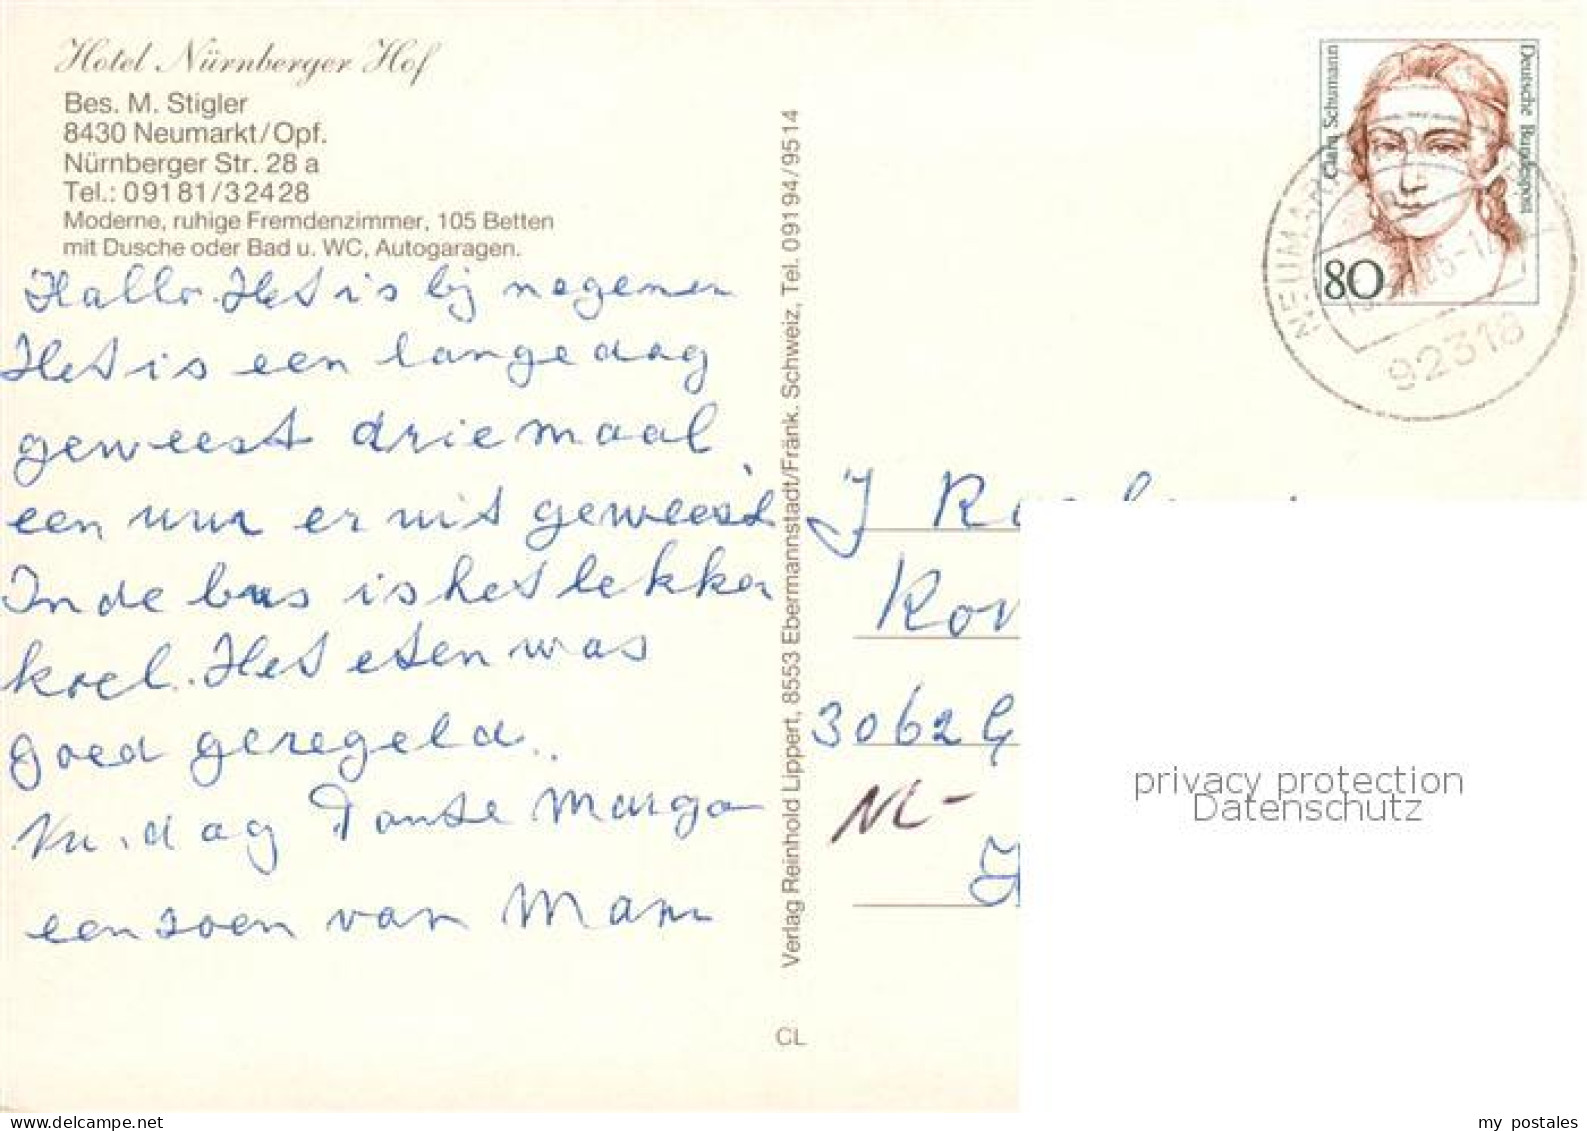 Hotel Nürnberger Hof
Bes. M. Stigler
8430 Neumarkt/Opf.
Nürnberger Str. 28 a
Tel.: 09181/32428
Moderne, ruhige Fremdenzimmer, 105 Betten
mit Dusche oder Bad u. WC, Autogaragen.
Hallo. Het is bij negenen
Het is een lange dag
geweest driemaal
een uur er uit geweest
In de bus is het lekker
koel. Het eten was
goed geregeld.
dag Tante Marga
een zoen van Mam
Verlag Reinhold Lippert, 8553 Ebermannstadt/Fränk. Schweiz, Tel. 09194/9514
CL
Clara Schumann
Deutsche Bundespost
80
NEUMARKT
92318
J
3062 G
NL-
privacy protection
Datenschutz
my postales